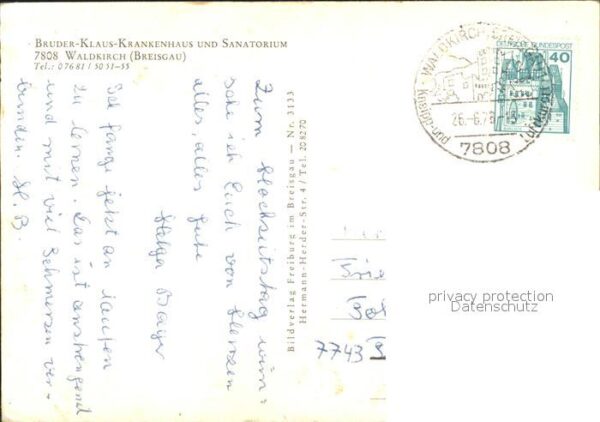 BRUDER-KLAUS-KRANKENHAUS UND SANATORIUM
7808 WALDKIRCH (BREISGAU)
Tel.: 07681 / 5051-55
Zum Hochzeitstag wün-
sche ich Euch von Herzen
alles, alles Gute
Helga Bayer
Ich fange jetzt an laufen
zu lernen. Das ist anstrengend
und mit viel Schmerzen ver-
bunden. H. B.
Bildverlag Freiburg im Breisgau — Nr. 3133
Hermann-Herder-Str. 4 / Tel. 208270
WALDKIRCH
26.-6.78
7808
DEUTSCHE BUNDESPOST
40
7743
privacy protection
Datenschutz